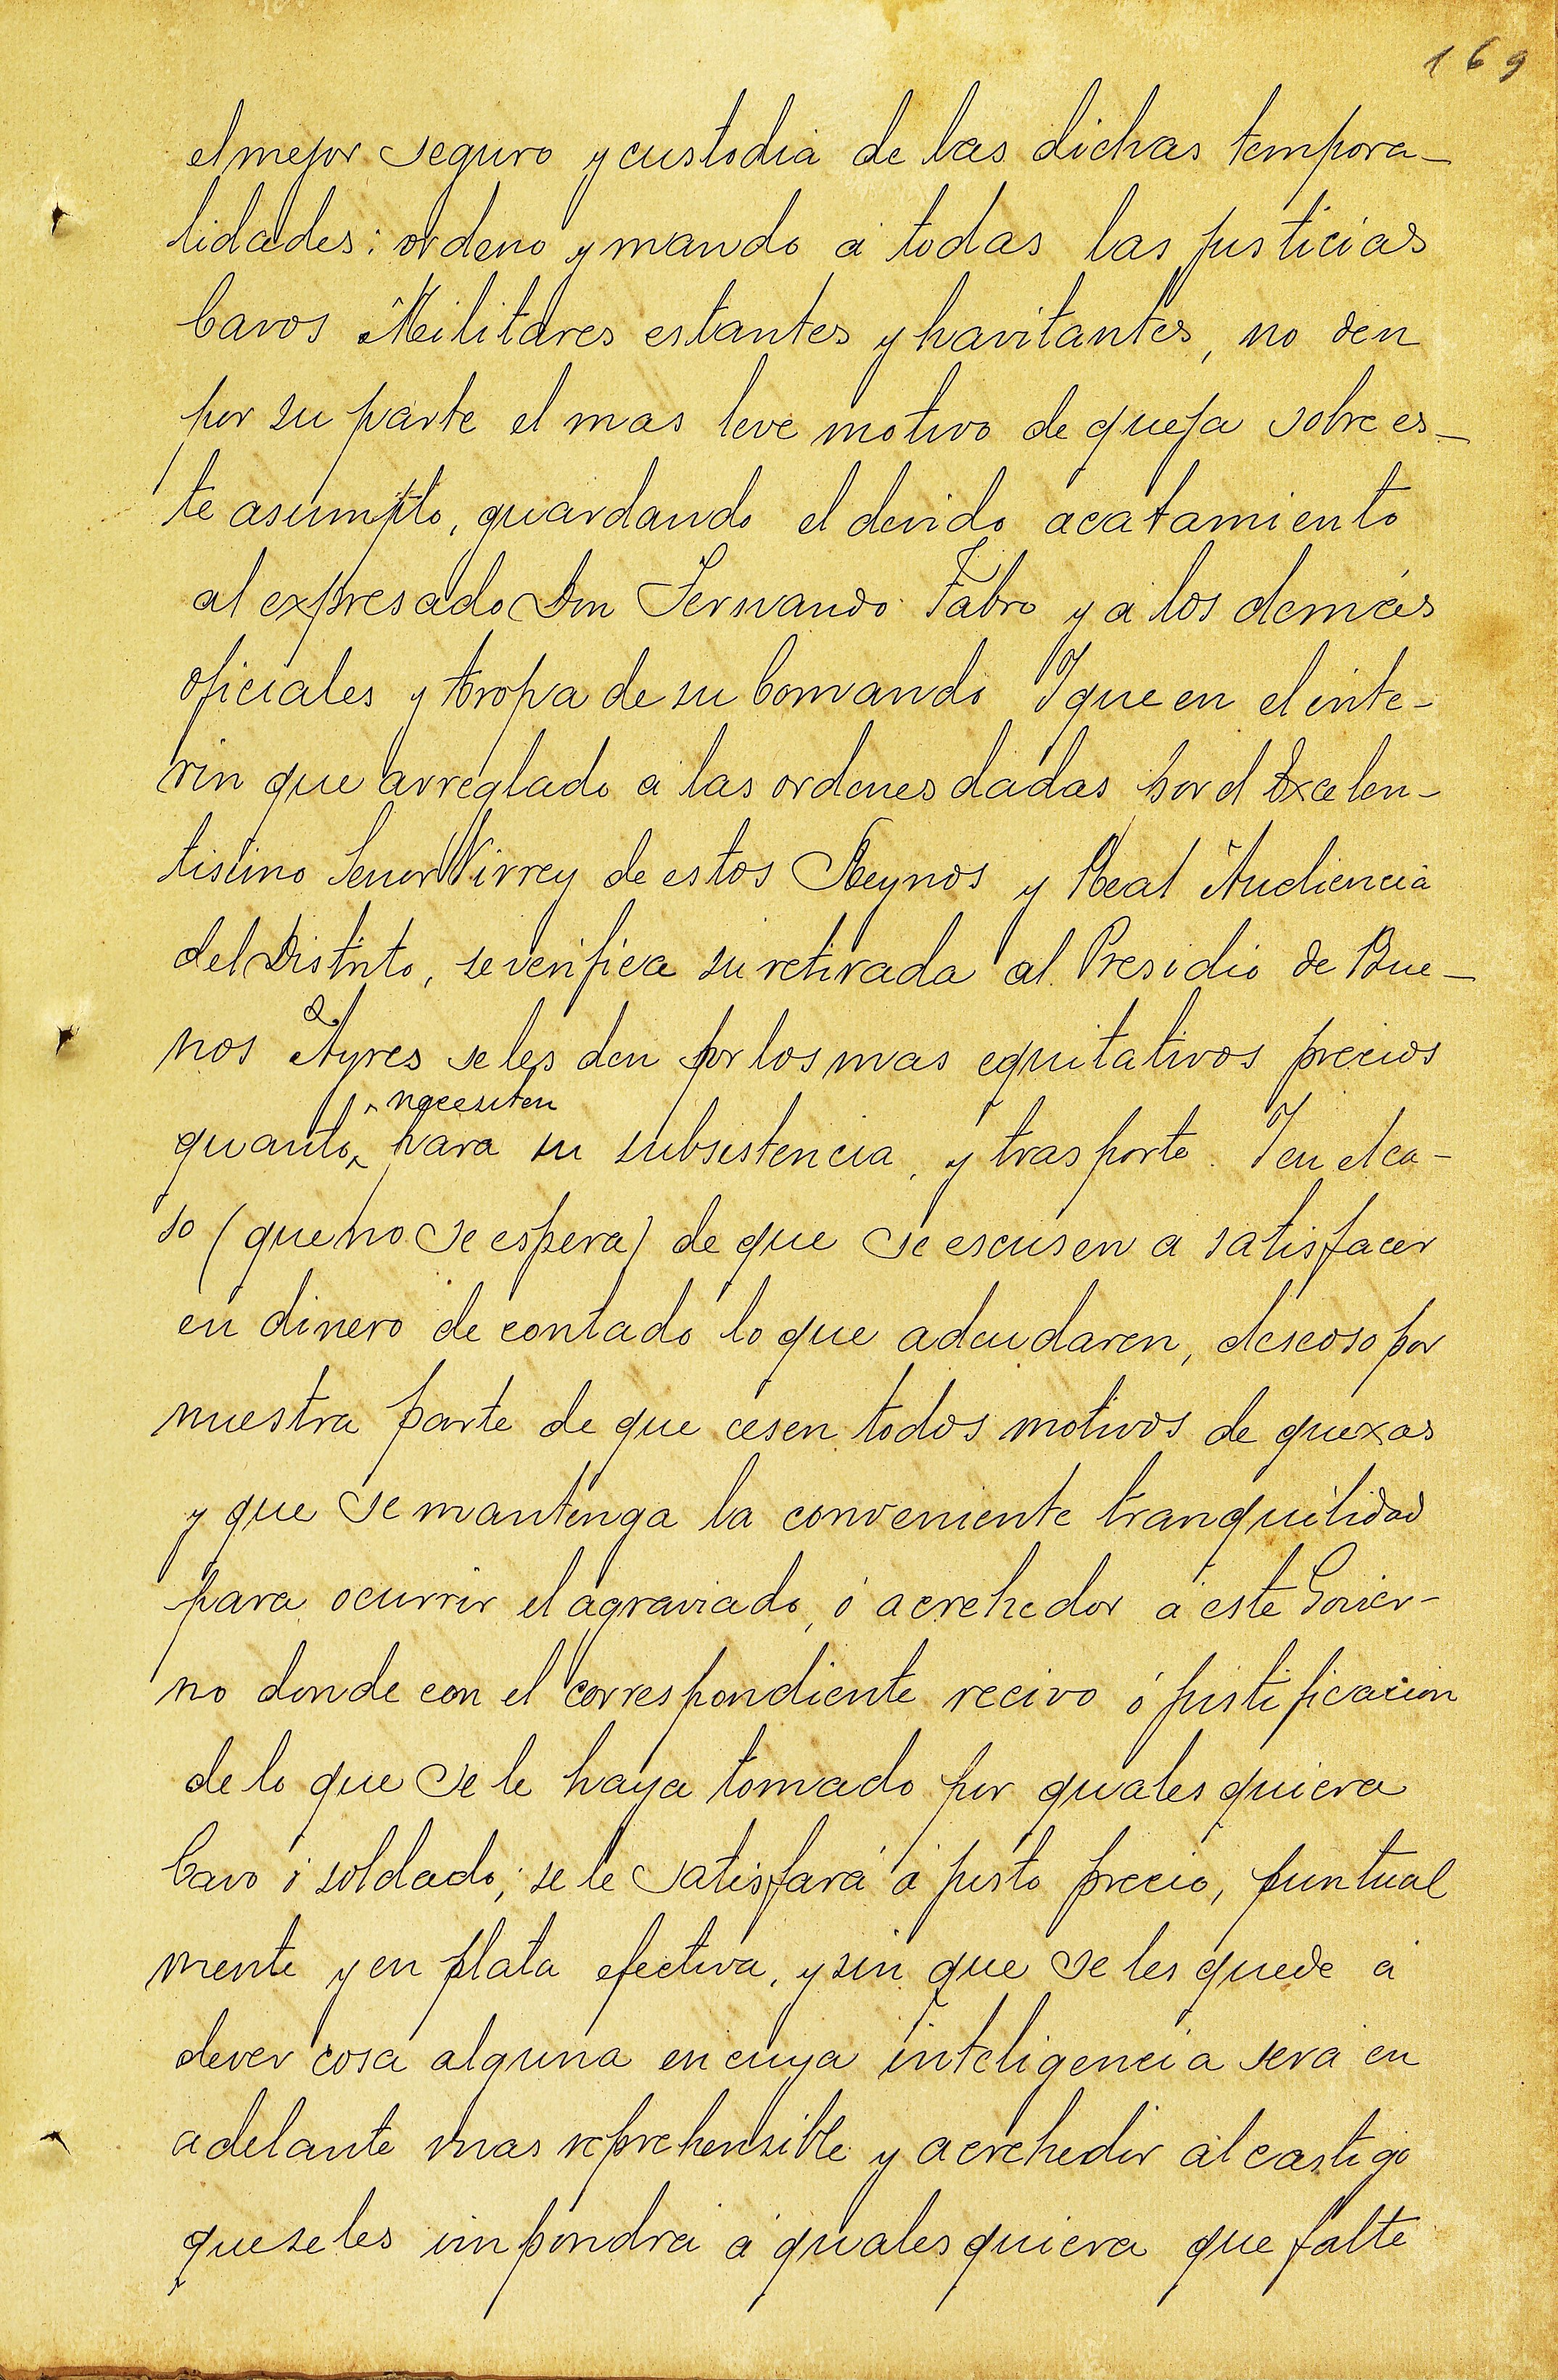 169
el mejor seguro y custodia de las dichas tempora-
lidades: ordeno y mando á todas las justicias
Cavos Militares estantes y havitantes, no den
por su parte el mas leve motivo de queja sobre es-
te asumpto, guardando el devido acatamiento
al expresado Don Fernando Fabro y a los demás
oficiales y tropa de su Comando Y que en el inte-
rin que arreglado a las ordenes dadas por el Excelen-
tisimo Señor Virrey de estos Reynos y Real Audiencia
del Distrito, se verifica su retirada al Presidio de Bue-
nos Ayres se les den por los mas equitativos precios
necesiten
quanto para su subsistencia, y trasporte. Y en el ca-
so (que no se espera) de que se escusen a satisfacer
en dinero de contado lo que adeudaren, deseoso por
nuestra parte de que cesen todos motivos de quexas
y que se mantenga la conveniente tranquilidad
para ocurrir el agraviado, ó acrehedor á este Govier-
no donde con el correspondiente recivo ó justificacion
de lo que se le haya tomado por quales quiera
Cavo ó soldado; se le satisfará á justo precio, puntual
mente y en plata efectiva, y sin que se les quede á
dever cosa alguna en cuya inteligencia sera en
adelante mas reprehensible y acrehedor al castigo
que se les impondra á quales quiera que falte